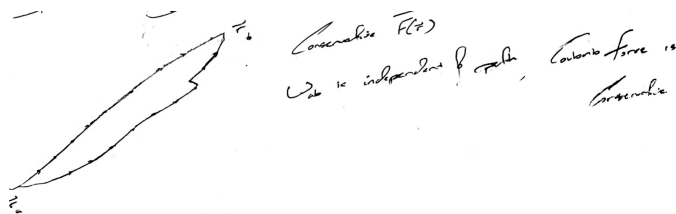 r⃗_b
Conservative F⃗(r⃗)
W_ab is independent of path, Coulomb force is
Conservative
r⃗_a